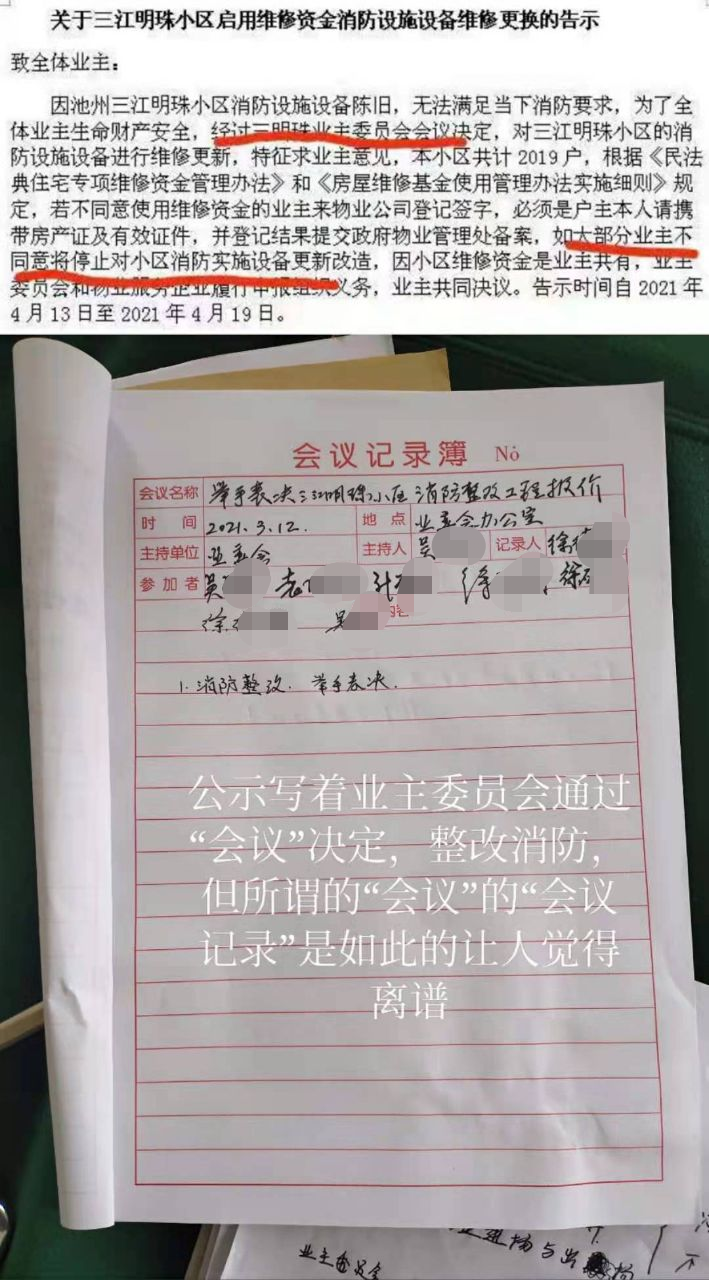 关于三江明珠小区启用维修资金消防设施设备维修更换的告示
致全体业主：
因池州三江明珠小区消防设施设备陈旧，无法满足当下消防要求，为了全
体业主生命财产安全，经过三明珠业主委员会会议决定，对三江明珠小区的消
防设施设备进行维修更新，特征求业主意见，本小区共计 2019 户，根据《民法
典住宅专项维修资金管理办法》和《房屋维修基金使用管理办法实施细则》规
定，若不同意使用维修资金的业主来物业公司登记签字，必须是户主本人请携
带房产证及有效证件，并登记结果提交政府物业管理处备案，如大部分业主不
同意将停止对小区消防实施设备更新改造，因小区维修资金是业主共有，业主
委员会和物业服务企业履行申报组织义务，业主共同决议。告示时间自 2021 年
4 月 13 日至 2021 年 4 月 19 日。
会议记录簿 No
会议名称 举手表决三江明珠小区消防整改工程报价
时 间 2021.3.12. 地 点 业委会办公室
主持单位 业委会 主持人 吴 记录人 徐
参加者 吴 袁 徐 徐
徐 吴
1. 消防整改. 举手表决.
公示写着业主委员会通过
“会议”决定，整改消防，
但所谓的“会议”的“会议
记录”是如此的让人觉得
离谱
业主委员会